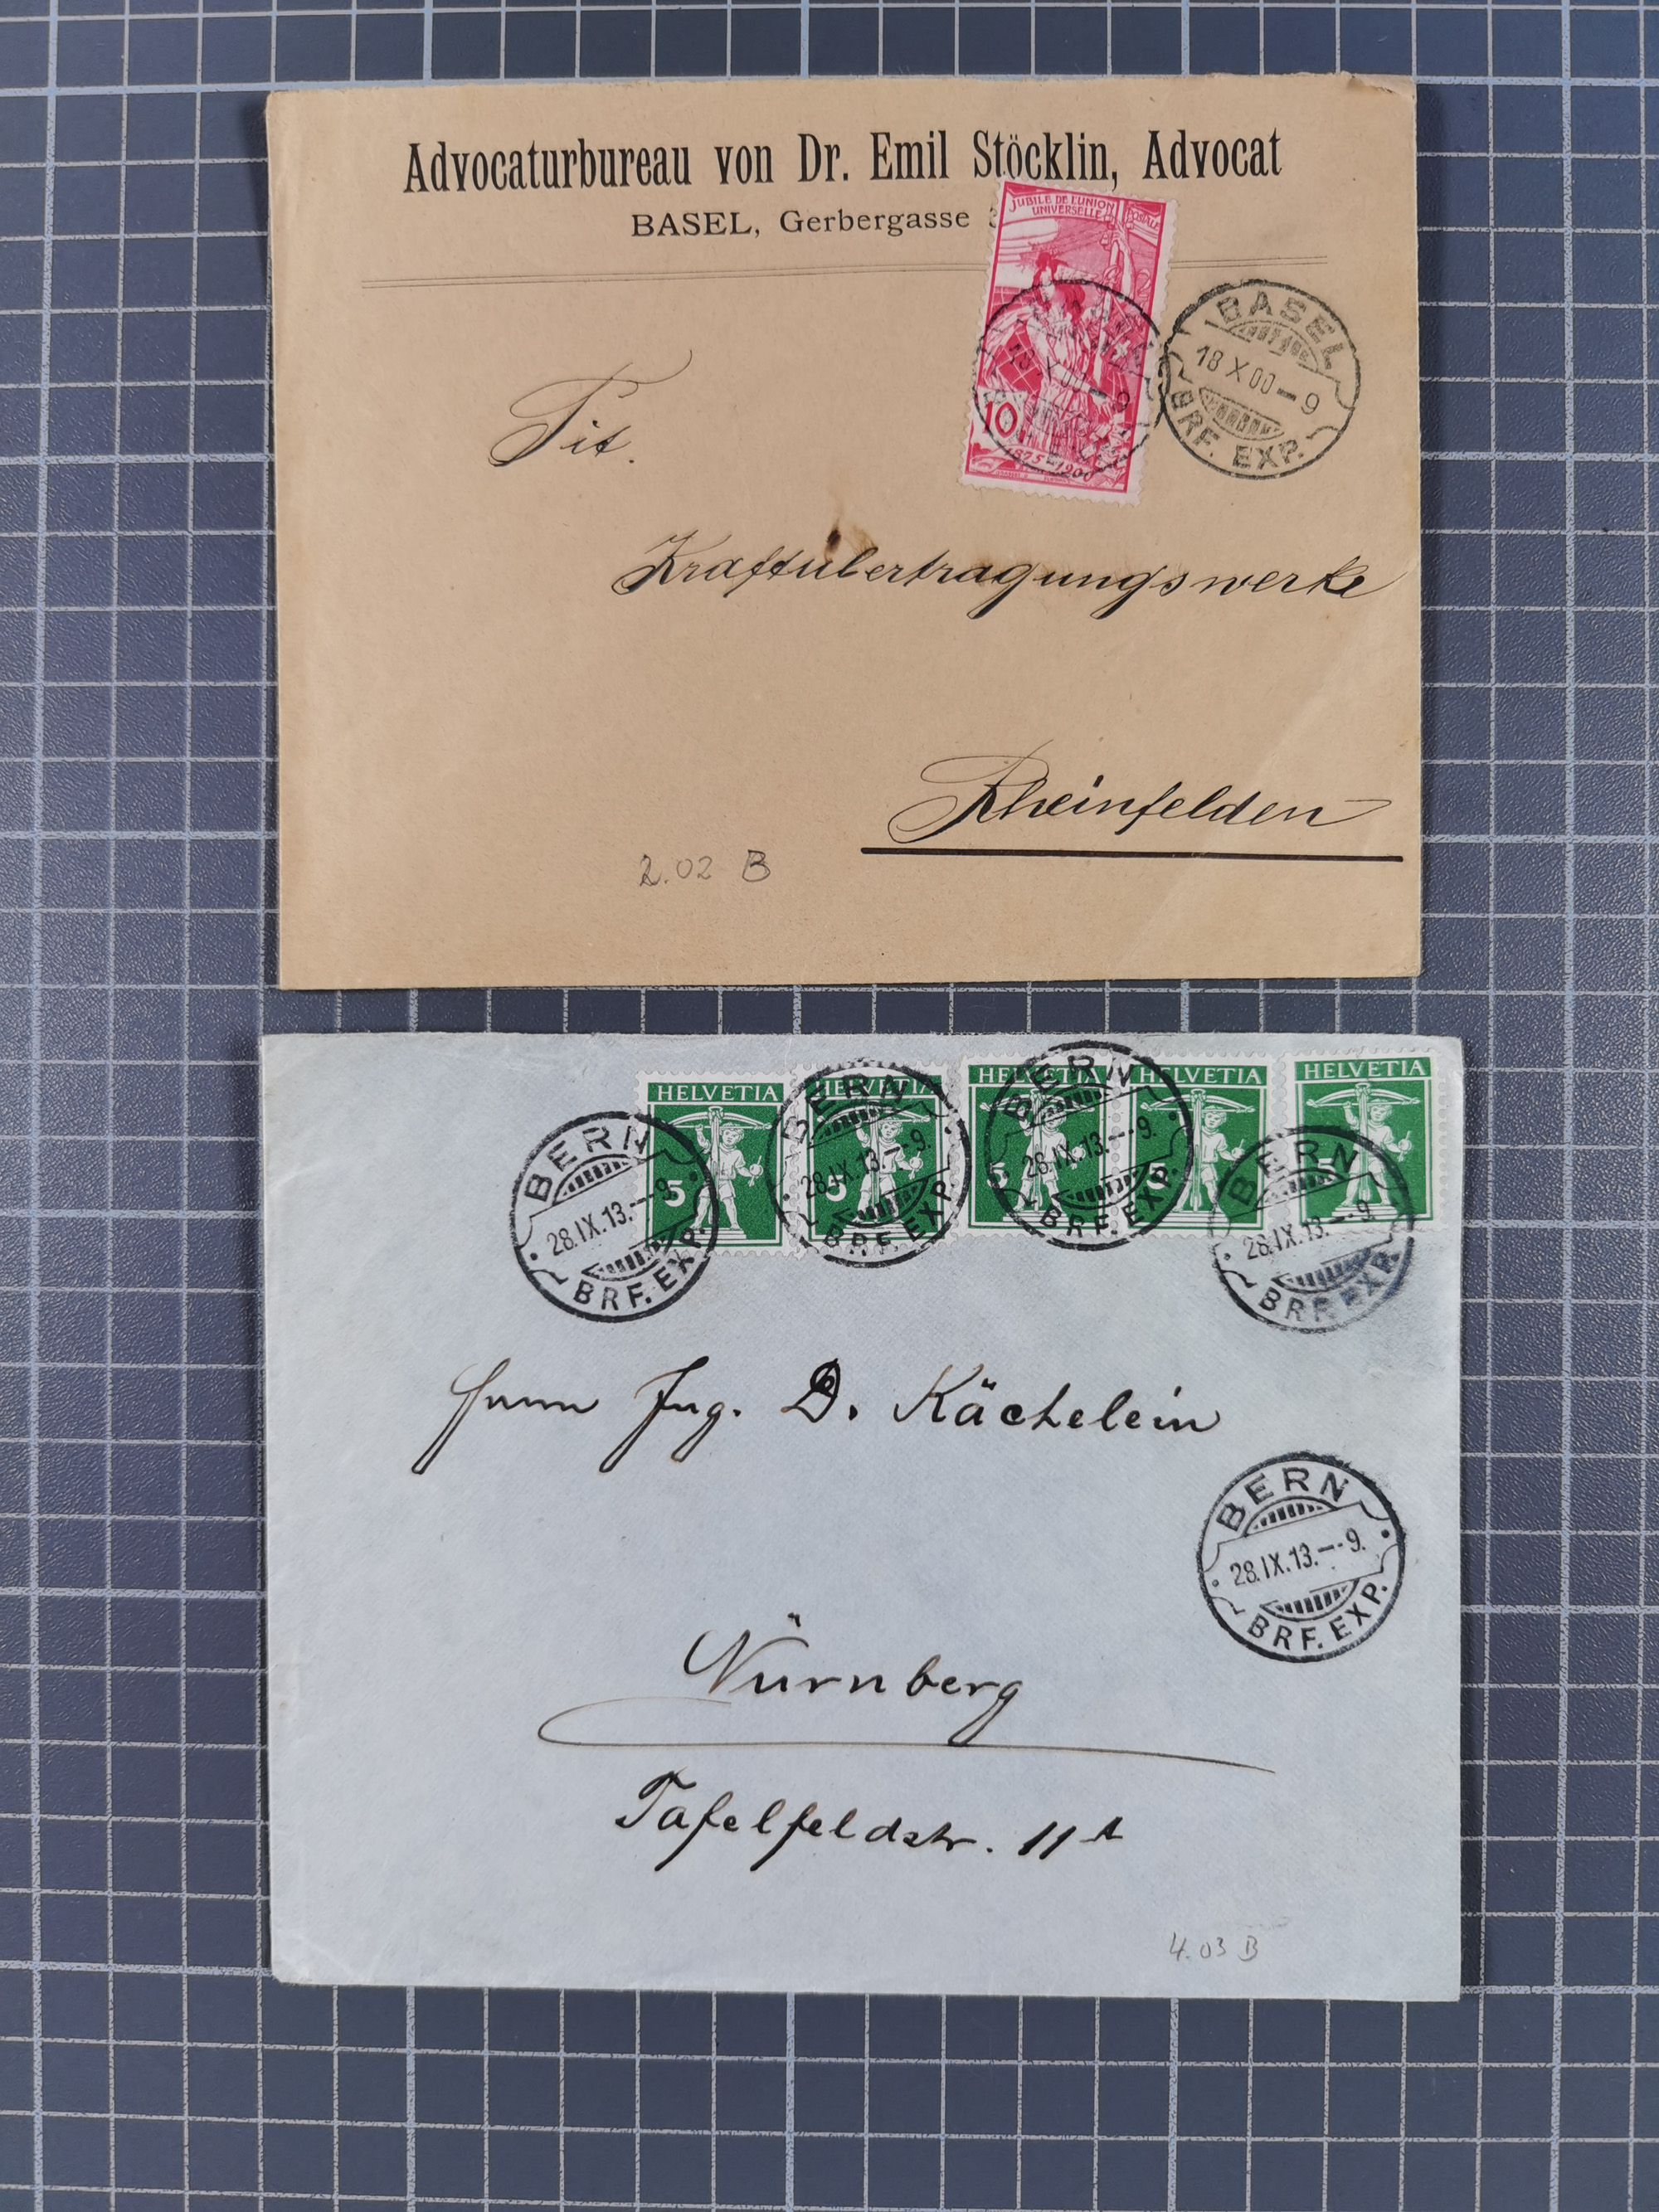 Advocaturbureau von Dr. Emil Stöcklin, Advocat
BASEL, Gerbergasse
JUBILÉ DE L'UNION POSTALE
UNIVERSELLE
10
1875-1900
BASEL
18 X 00-9
BRF. EXP.
BASEL
18 X 00-9
BRF. EXP.
Tit.
Kraftübertragungswerke
Rheinfelden
2.02 B
HELVETIA HELVETIA HELVETIA HELVETIA HELVETIA
5 5 5 5 5
BERN
28.IX.13.--9.
BRF. EXP.
BERN
28.IX.13.--9.
BRF. EXP.
BERN
28.IX.13.--9.
BRF. EXP.
BERN
28.IX.13.--9.
BRF. EXP.
Herrn Ing. D. Kächelein
BERN
28.IX.13.--9.
BRF. EXP.
Nürnberg
Tafelfeldstr. 11
4.03 B